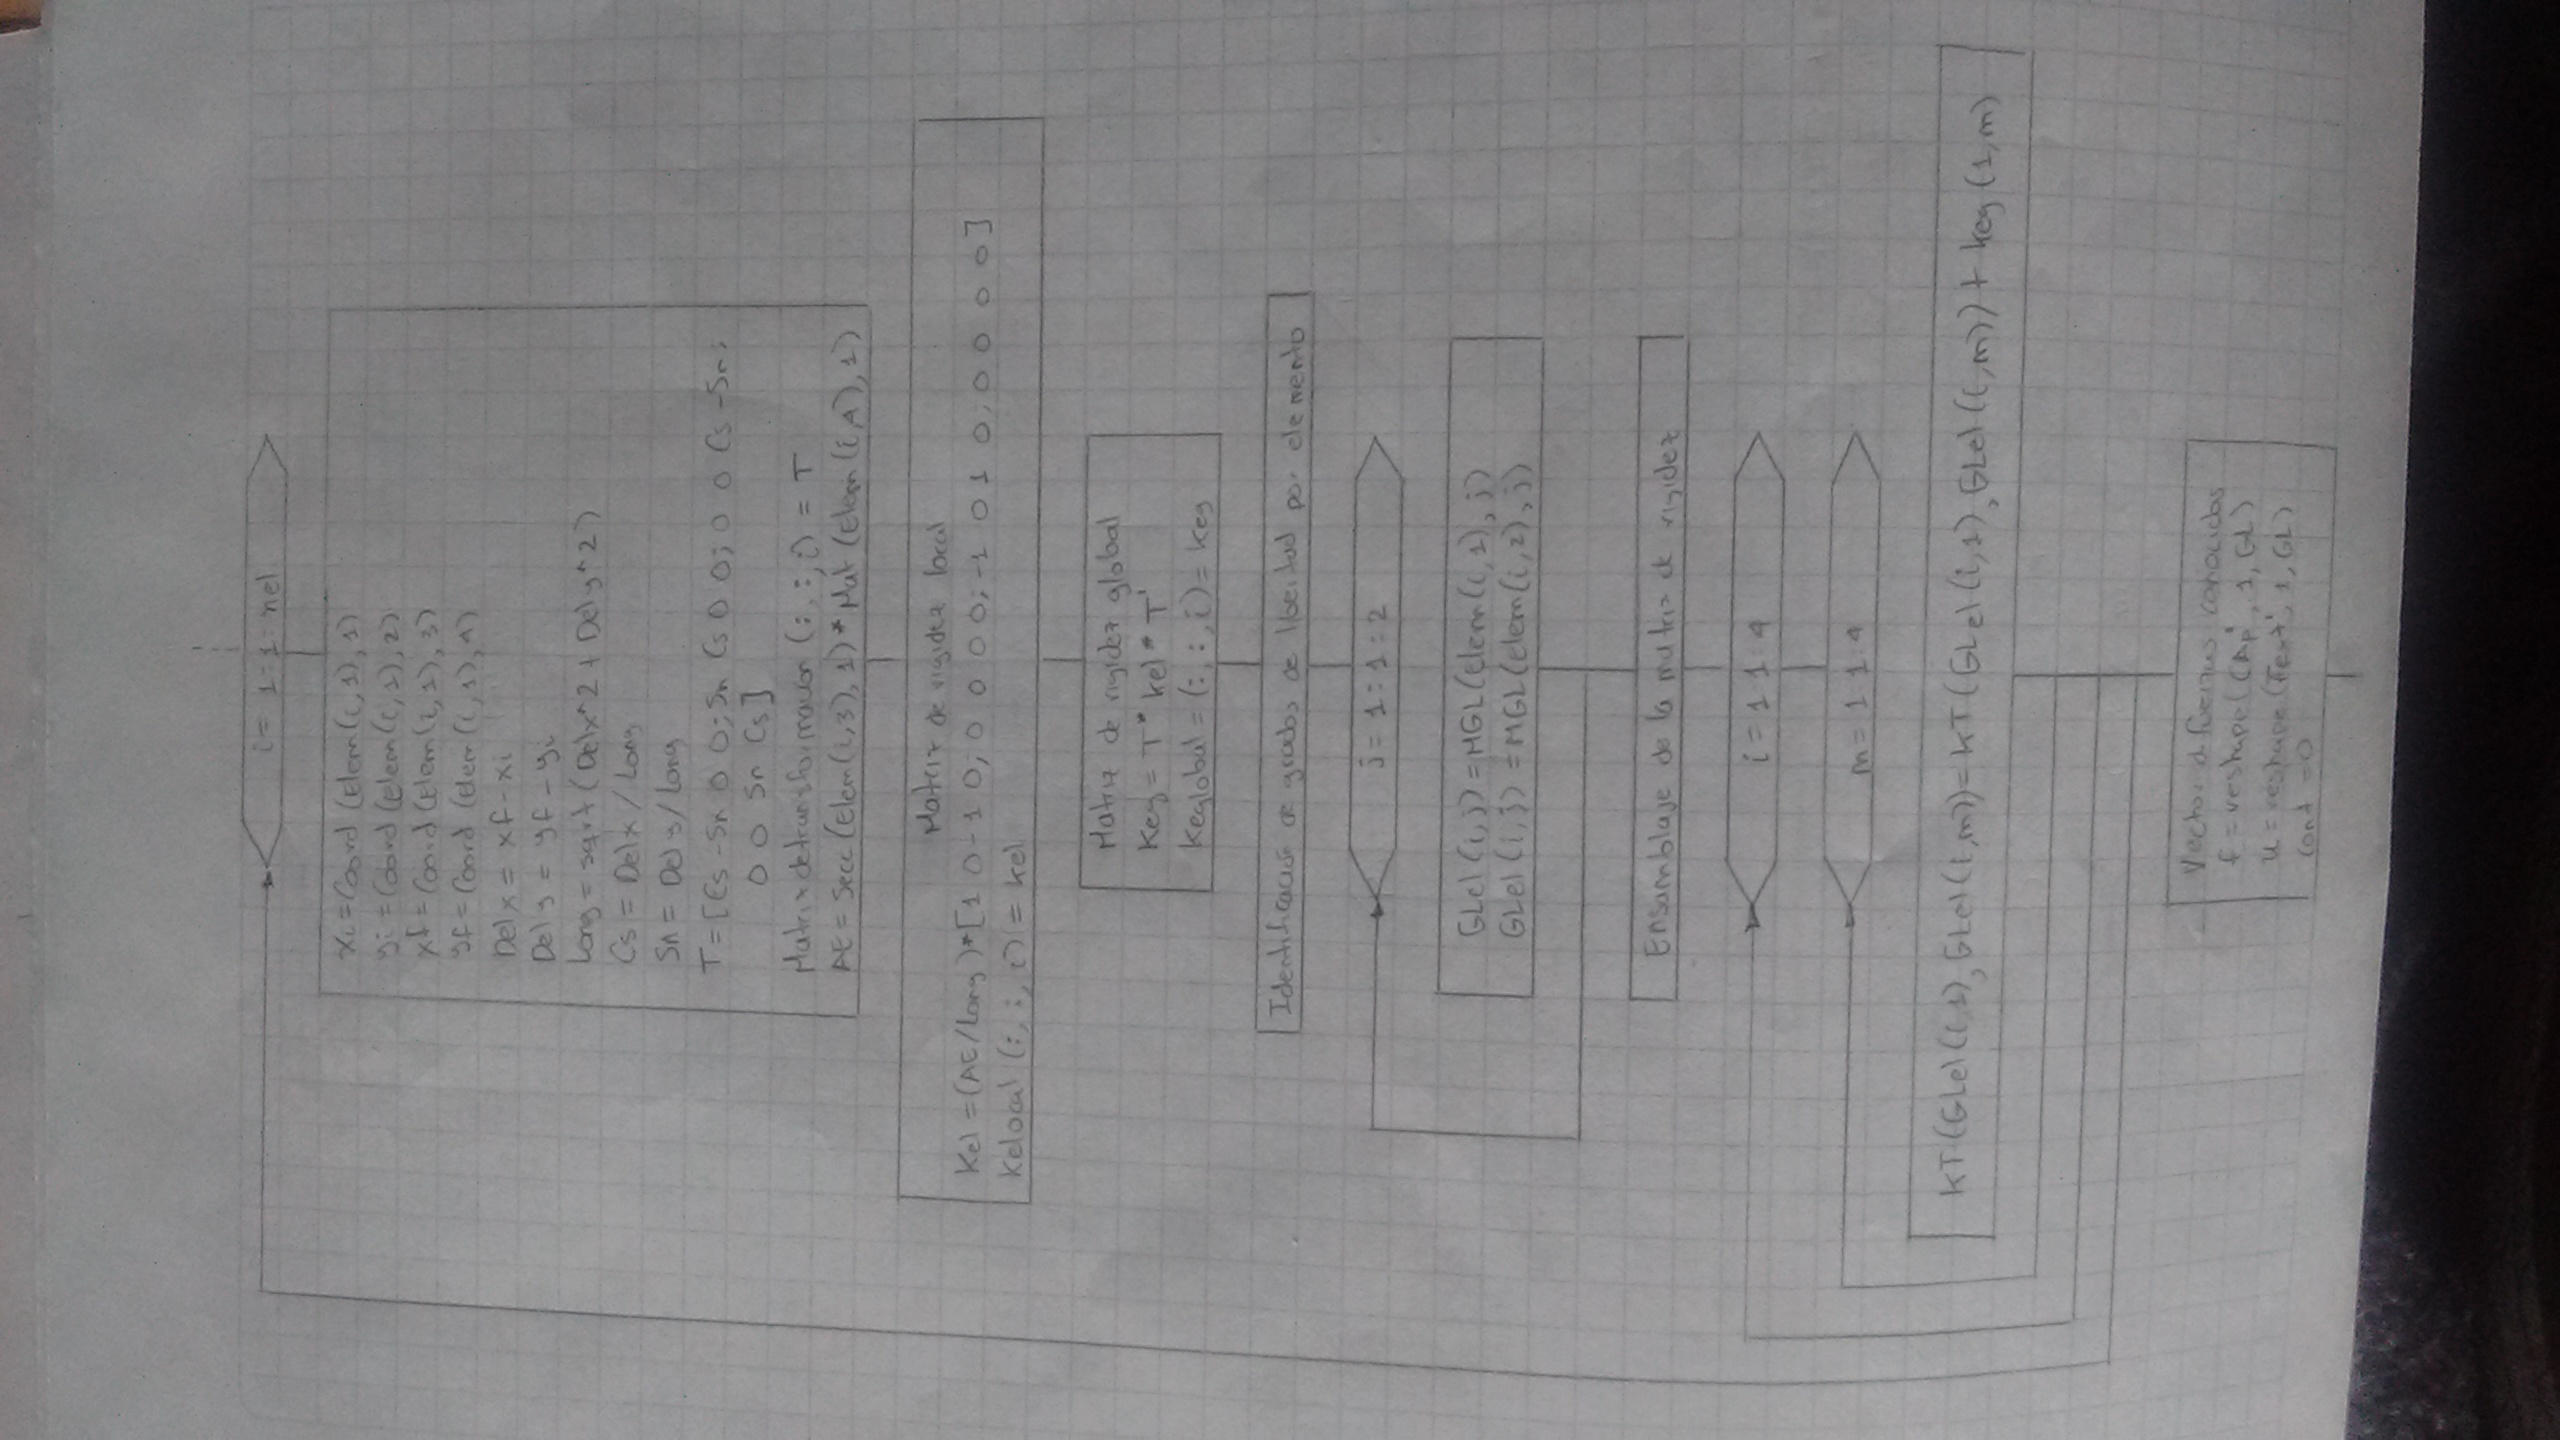 i = 1:1:nel
xi = Coord (Elem(i,1),1)
yi = Coord (Elem(i,1),2)
xf = Coord (Elem(i,1),3)
yf = Coord (Elem(i,1),4)
Delx = xf - xi
Dely = yf - yi
Long = sqrt (Delx^2 + Dely^2)
Cs = Delx / Long
Sn = Dely / Long
T = [Cs -Sn 0 0; Sn Cs 0 0; 0 0 Cs -Sn;
0 0 Sn Cs]
Matrixdetransformación (:,:,i) = T
AE = Secc (Elem(i,3),1) * Mat (Elem(i,4),1)
Matriz de rigidez local
Kel = (AE/Long)*[1 0 -1 0; 0 0 0 0; -1 0 1 0; 0 0 0 0]
Kelocal (:,:,i) = kel
Matriz de rigidez global
Keg = T * kel * T'
Keglobal = (:,:,i) = keg
Identificación de grados de libertad por elemento
j = 1:1:2
GLel (i,j) = MGL (elem(i,1),j)
GLel (i,j) = MGL (elem(i,2),j)
Ensamblaje de la matriz de rigidez
i = 1:1:4
m = 1:1:4
KT(GLel(i,1),GLel(i,m)) = KT(GLel(i,1),GLel(i,m)) + keg(1,m)
Vector de fuerzas conocidas
f = reshape (CAp',1,GL)
u = reshape (Text',1,GL)
Cont = 0